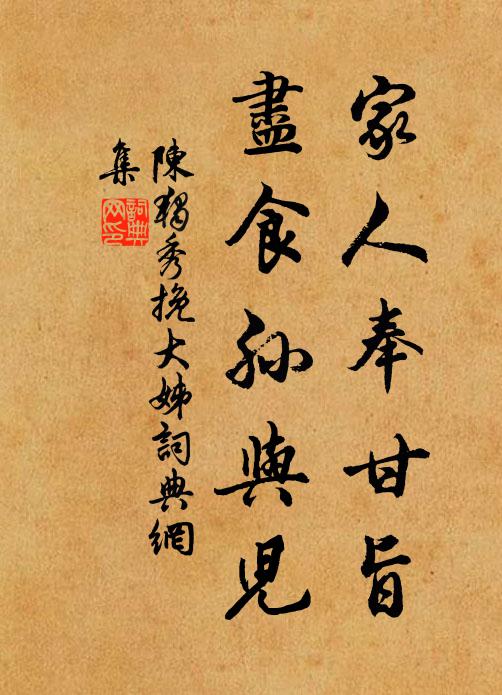 家人奉甘旨
盡食孫與兒
陳獨秀挽大姊詞典網
集
詞典
网印